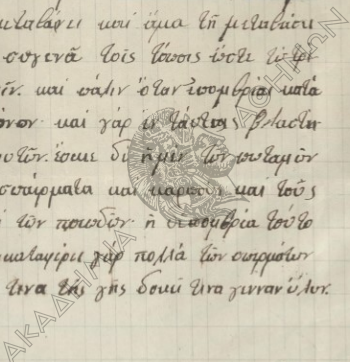 μεταβάσει καὶ ἅμα τῇ μεταβάσει
συγγενᾶ τοῖς τόποις ὥστε
καὶ πάλιν ὅταν ἐπομβρίαι κατὰ
καὶ γὰρ ἐν ταύταις
ἔοικε δὲ τῶν ποταμῶν
σπέρματα καὶ καρποὺς καὶ τοὺς
τῶν ποιωδῶν· ἡ ἐπομβρία τοῦτο
καταφέρει γὰρ πολλὰ τῶν σπερμάτων
τινα τῆς γῆς δοκεῖ τινα γεννᾶν ὕλην.
ΑΚΑΔΗΜΙΑ
ΑΘΗΝΩΝ